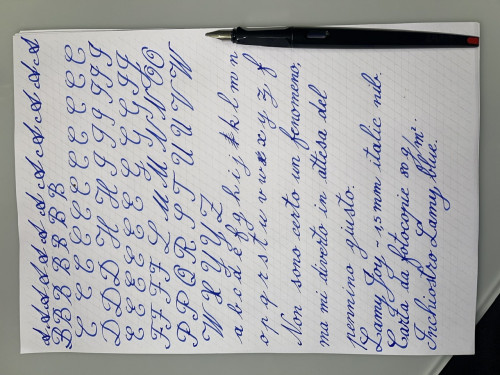 A A A A A A A A A A A
B B B B B B B
C C C C C C C C C C
D D D H H I I I I I
E E E E E G G G G
F F F F L M M N N N O O
P P Q R S T U U V V W
W X Y Y Z
a b c d e f g h i j k l m n
o p q r s t u v w x y z z f
Non sono certo un fenomeno,
ma mi diverto in attesa del
pennino giusto.
Lamy Joy - 1.5 mm italic nib.
Carta da fotocopie 80 g/m².
Inchiostro Lamy blue.